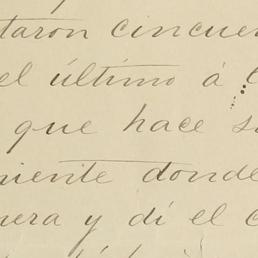 taron cincuen
el último á
que hace s
niente donde
nera y dí el c